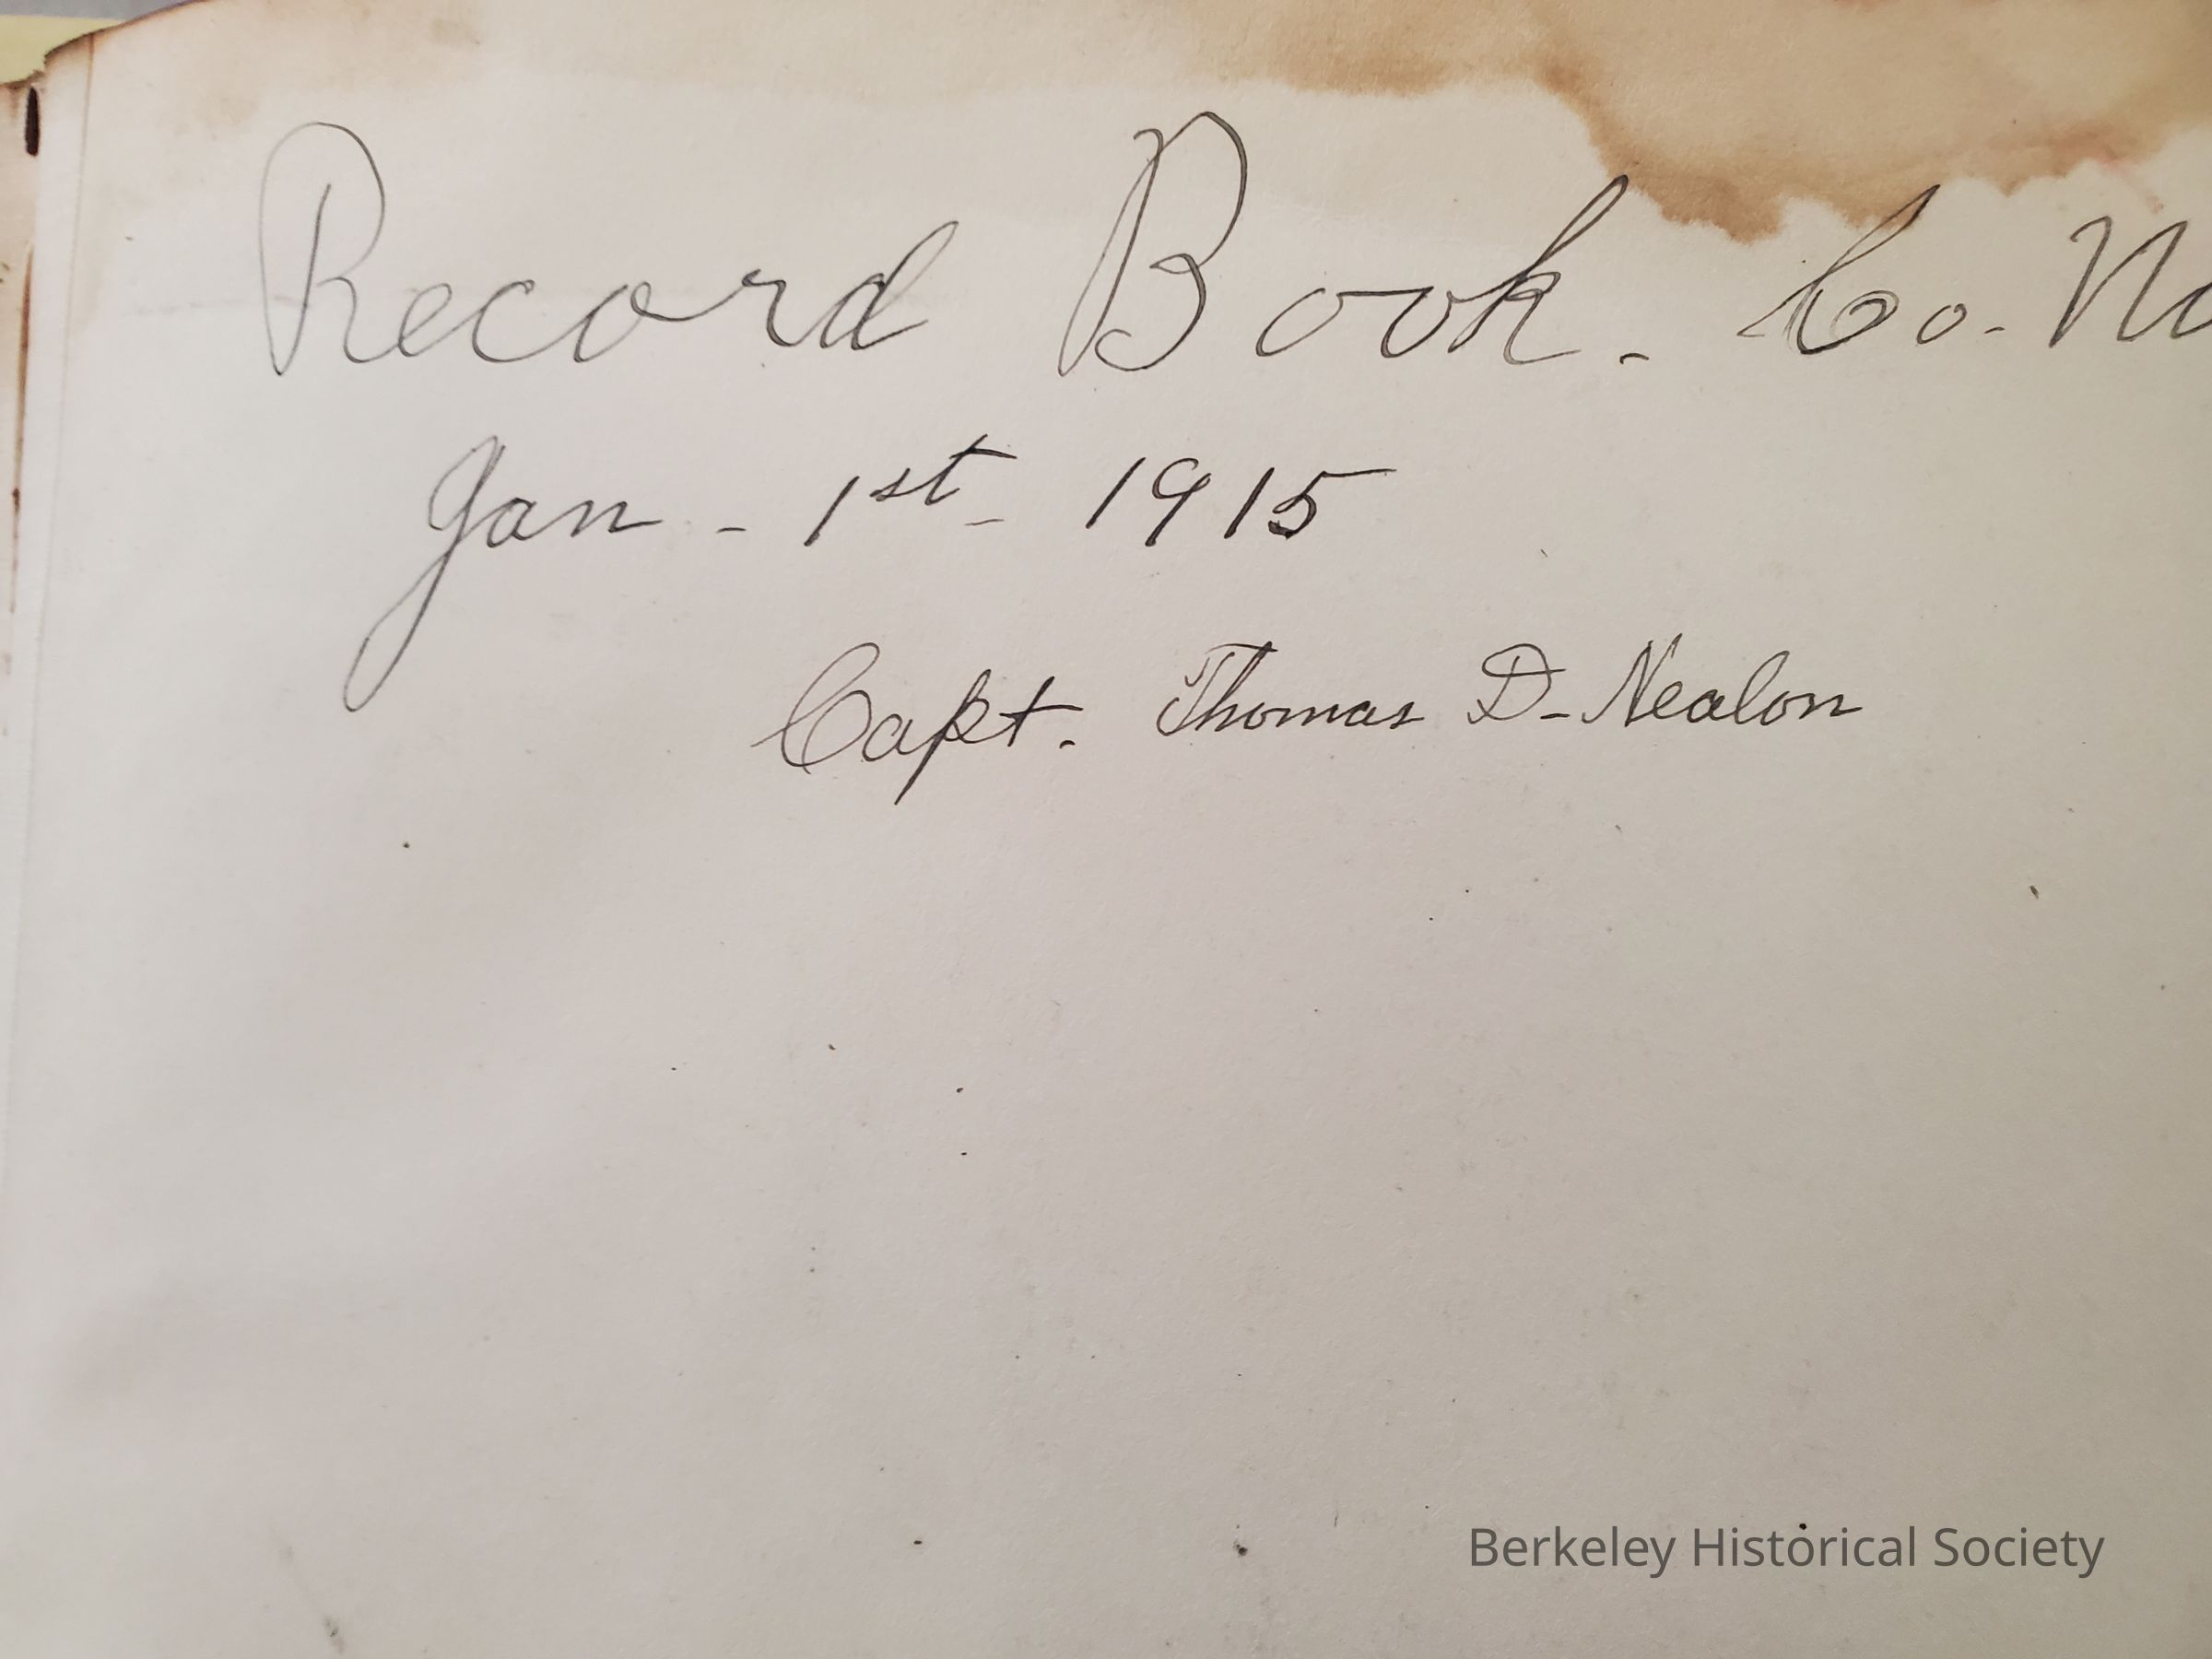 Record Book. Co. No
Jan - 1st - 1915
Capt. Thomas D. Nealon
Berkeley Historical Society